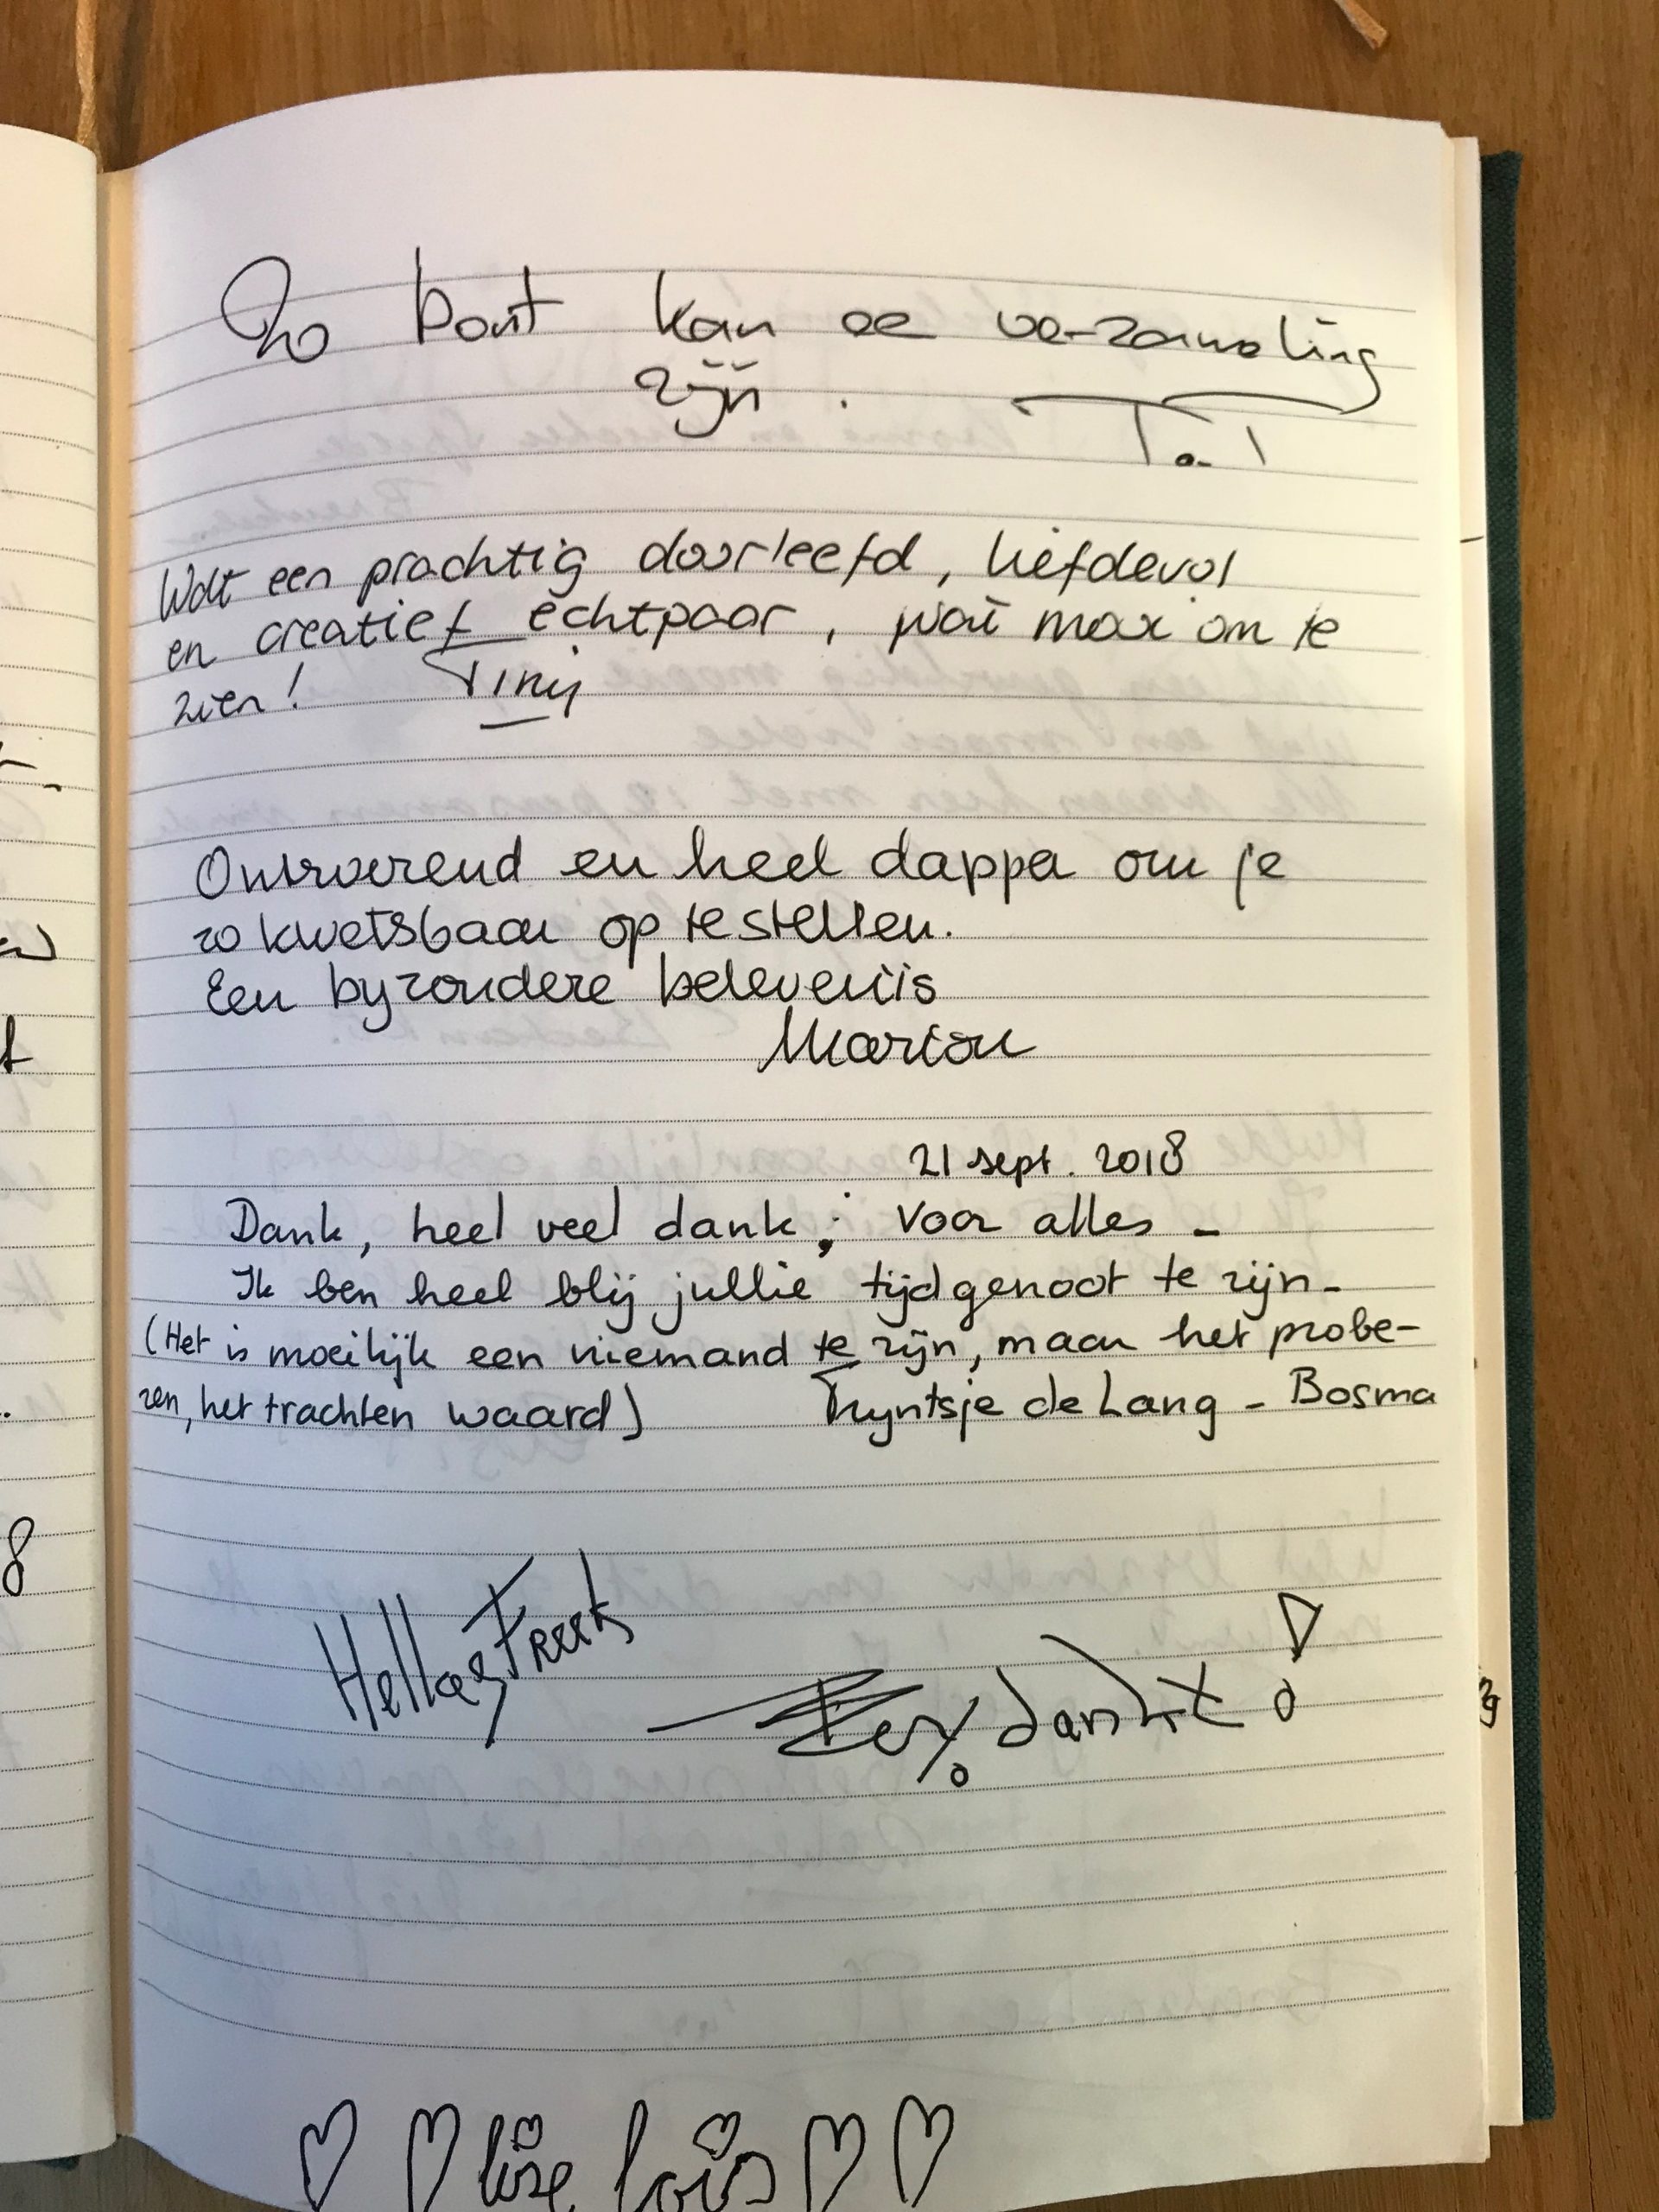 Zo bont kan de verzameling
zijn.
Wat een prachtig doorleefd, liefdevol
en creatief echtpaar, wat mooi om te
zien! Tiny
Ontroerend en heel dapper om je
zo kwetsbaar op te stellen.
Een byzondere belevenis
Marion
21 sept. 2018
Dank, heel veel dank; voor alles -
Ik ben heel blij jullie tijdgenoot te zijn -
(Het is moeilijk een niemand te zijn, maar het probe-
ren, het trachten waard) Tryntsje de Lang - Bosma
Hella & Freek
bedankt!
lise lois